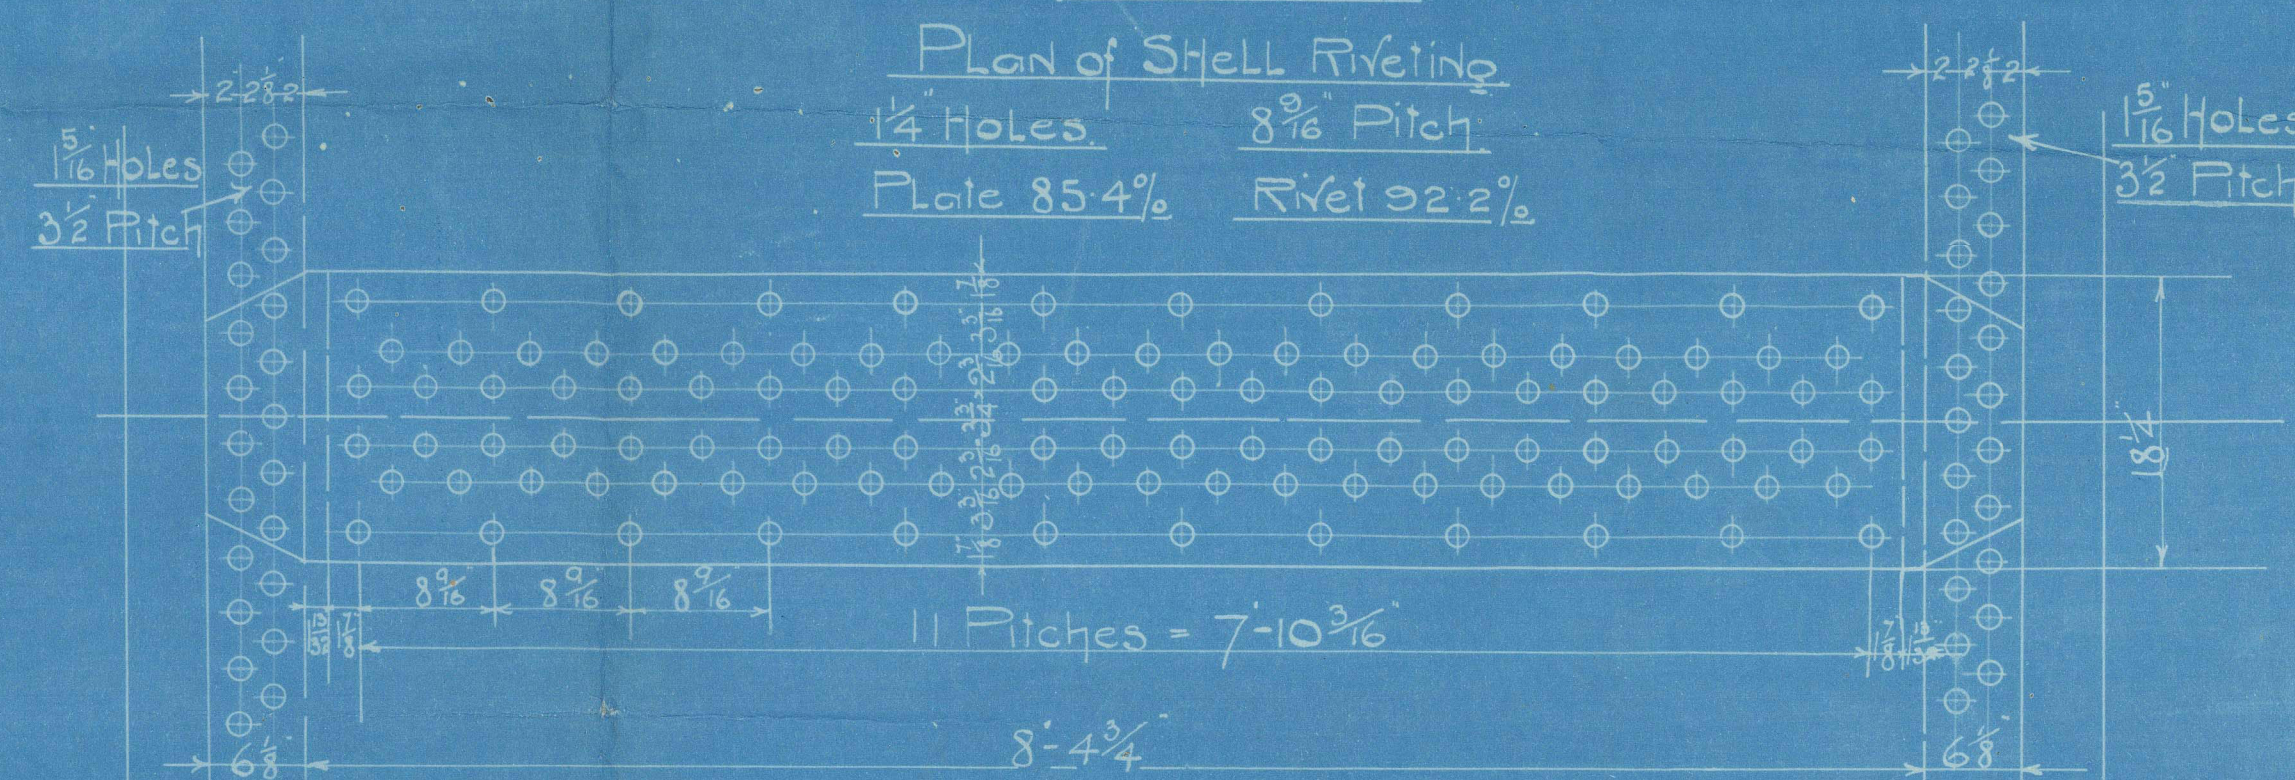 PLan of SHeLL RiVeting
1 1/4" HoLes. 8 9/16" Pitch.
PLate 85·4% RiVet 92·2%
2" 2 1/8" 2"
1 5/16" HoLes
3 1/2" Pitch
2" 2 1/8" 2"
1 5/16" HoLes
3 1/2" Pitch
1 7/8" 3 3/16" 2 3/16" 3 3/4" 2 3/16" 3 3/16" 1 7/8"
18 1/4"
8 9/16" 8 9/16" 8 9/16"
1 13/32" 1 7/8"
11 Pitches = 7'-10 3/16"
1 7/8"
6 1/8"
8'-4 3/4"
6 1/8"